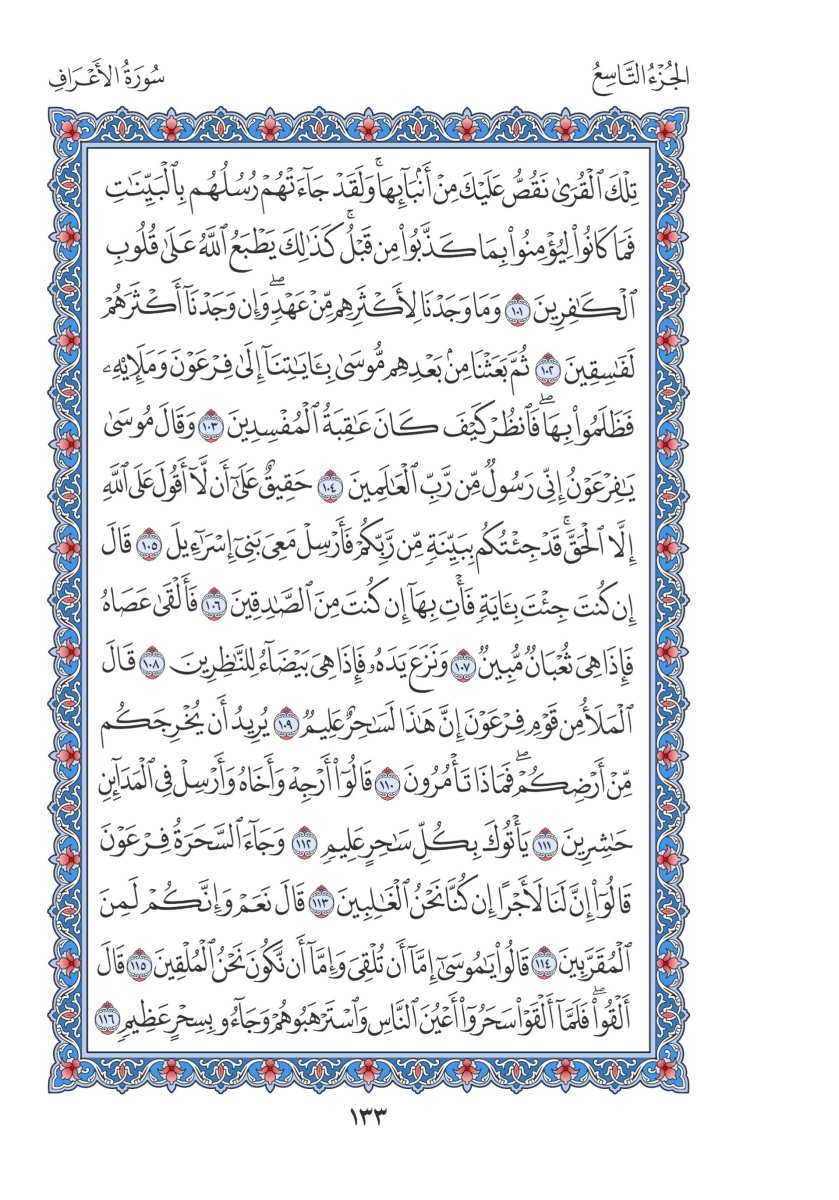 الجُزْءُ التَّاسِعُ
سُورَةُ الأَعْرَافِ
تِلْكَ ٱلْقُرَىٰ نَقُصُّ عَلَيْكَ مِنْ أَنۢبَآئِهَاۚ وَلَقَدْ جَآءَتْهُمْ رُسُلُهُم بِٱلْبَيِّنَٰتِ
فَمَا كَانُوا۟ لِيُؤْمِنُوا۟ بِمَا كَذَّبُوا۟ مِن قَبْلُۚ كَذَٰلِكَ يَطْبَعُ ٱللَّهُ عَلَىٰ قُلُوبِ
ٱلْكَٰفِرِينَ ١٠١ وَمَا وَجَدْنَا لِأَكْثَرِهِم مِّنْ عَهْدٍۖ وَإِن وَجَدْنَآ أَكْثَرَهُمْ
لَفَٰسِقِينَ ١٠٢ ثُمَّ بَعَثْنَا مِنۢ بَعْدِهِم مُّوسَىٰ بِـَٔايَٰتِنَآ إِلَىٰ فِرْعَوْنَ وَمَلَإِي۟هِۦ
فَظَلَمُوا۟ بِهَاۖ فَٱنظُرْ كَيْفَ كَانَ عَٰقِبَةُ ٱلْمُفْسِدِينَ ١٠٣ وَقَالَ مُوسَىٰ
يَٰفِرْعَوْنُ إِنِّى رَسُولٌ مِّن رَّبِّ ٱلْعَٰلَمِينَ ١٠٤ حَقِيقٌ عَلَىٰٓ أَن لَّآ أَقُولَ عَلَى ٱللَّهِ
إِلَّا ٱلْحَقَّۚ قَدْ جِئْتُكُم بِبَيِّنَةٍ مِّن رَّبِّكُمْ فَأَرْسِلْ مَعِىَ بَنِىٓ إِسْرَٰٓءِيلَ ١٠٥ قَالَ
إِن كُنتَ جِئْتَ بِـَٔايَةٍ فَأْتِ بِهَآ إِن كُنتَ مِنَ ٱلصَّٰدِقِينَ ١٠٦ فَأَلْقَىٰ عَصَاهُ
فَإِذَا هِىَ ثُعْبَانٌ مُّبِينٌ ١٠٧ وَنَزَعَ يَدَهُۥ فَإِذَا هِىَ بَيْضَآءُ لِلنَّٰظِرِينَ ١٠٨ قَالَ
ٱلْمَلَأُ مِن قَوْمِ فِرْعَوْنَ إِنَّ هَٰذَا لَسَٰحِرٌ عَلِيمٌ ١٠٩ يُرِيدُ أَن يُخْرِجَكُم
مِّنْ أَرْضِكُمْۖ فَمَاذَا تَأْمُرُونَ ١١٠ قَالُوٓا۟ أَرْجِهْ وَأَخَاهُ وَأَرْسِلْ فِى ٱلْمَدَآئِنِ
حَٰشِرِينَ ١١١ يَأْتُوكَ بِكُلِّ سَٰحِرٍ عَلِيمٍ ١١٢ وَجَآءَ ٱلسَّحَرَةُ فِرْعَوْنَ
قَالُوٓا۟ إِنَّ لَنَا لَأَجْرًا إِن كُنَّا نَحْنُ ٱلْغَٰلِبِينَ ١١٣ قَالَ نَعَمْ وَإِنَّكُمْ لَمِنَ
ٱلْمُقَرَّبِينَ ١١٤ قَالُوا۟ يَٰمُوسَىٰٓ إِمَّآ أَن تُلْقِىَ وَإِمَّآ أَن نَّكُونَ نَحْنُ ٱلْمُلْقِينَ ١١٥ قَالَ
أَلْقُوا۟ۖ فَلَمَّآ أَلْقَوْا۟ سَحَرُوٓا۟ أَعْيُنَ ٱلنَّاسِ وَٱسْتَرْهَبُوهُمْ وَجَآءُو بِسِحْرٍ عَظِيمٍ ١١٦
١٣٣